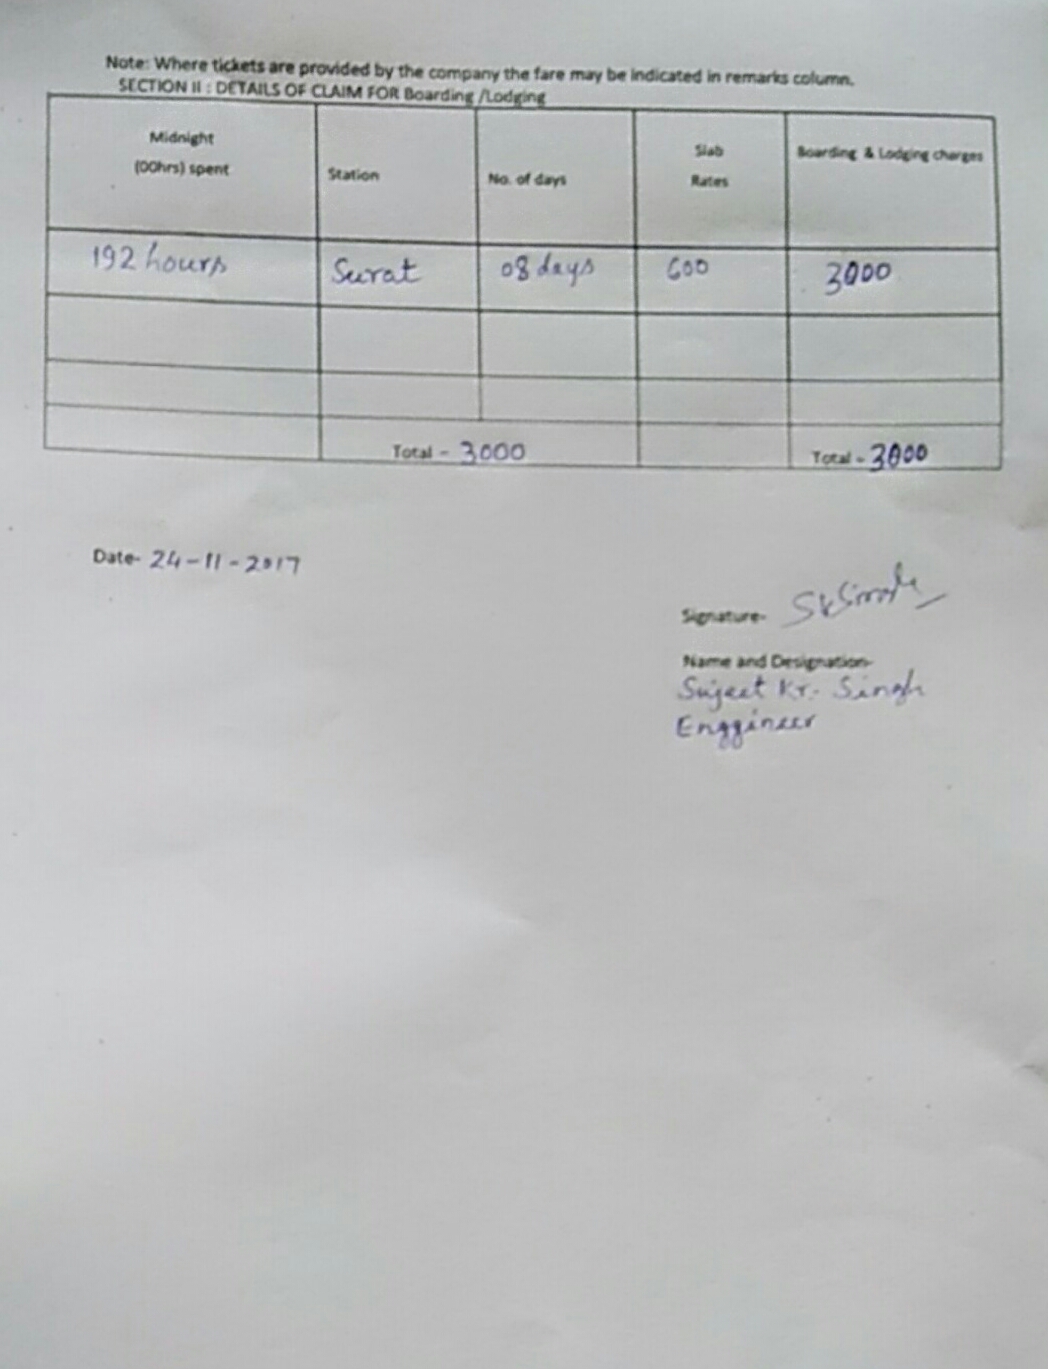 Note: Where tickets are provided by the company the fare may be indicated in remarks column.
SECTION II : DETAILS OF CLAIM FOR Boarding /Lodging
Midnight (00hrs) spent Station No. of days Slab Rates Boarding & Lodging charges
192 hours Surat 08 days 600 3000
Total - 3000 Total - 3000
Date- 24-11-2017
Signature- SKSingh
Name and Designation-
Sujeet Kr. Singh
Enggineer